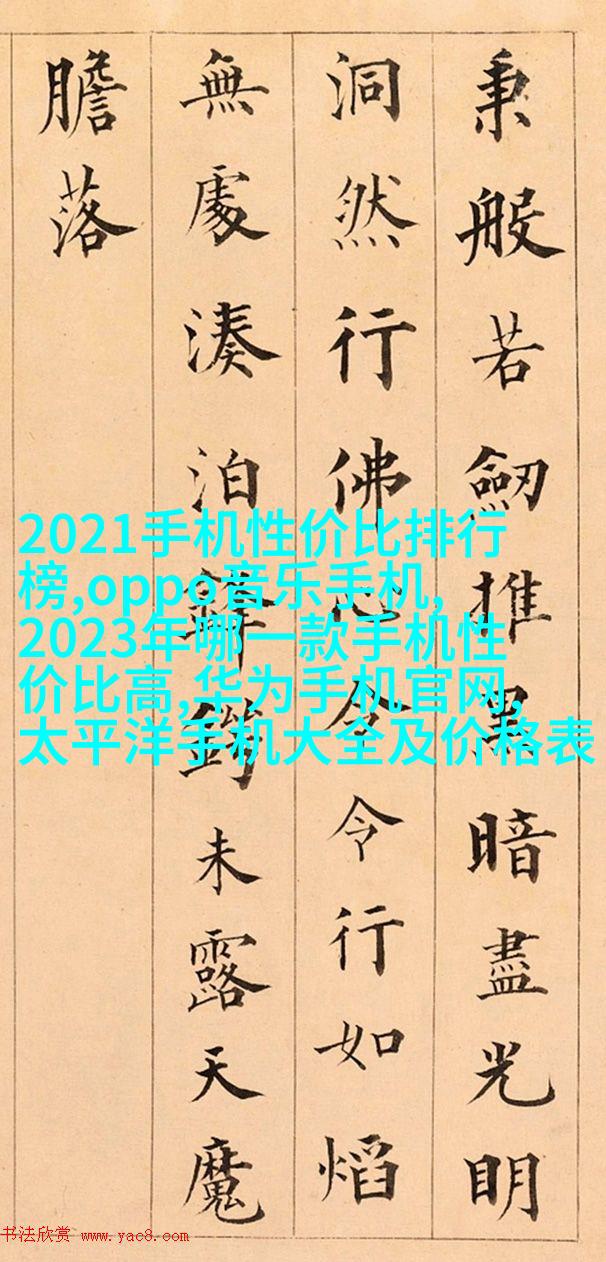 秉般若劒推黑暗盡光明
洞然行佛心令令行如熖
無處湊泊鋒鋩未露天魔
膽落
2021手机性价比排行
榜,oppo音乐手机,
2023年哪一款手机性
价比高,华为手机官网,
太平洋手机大全及价格表
书法欣赏 www.yac8.com